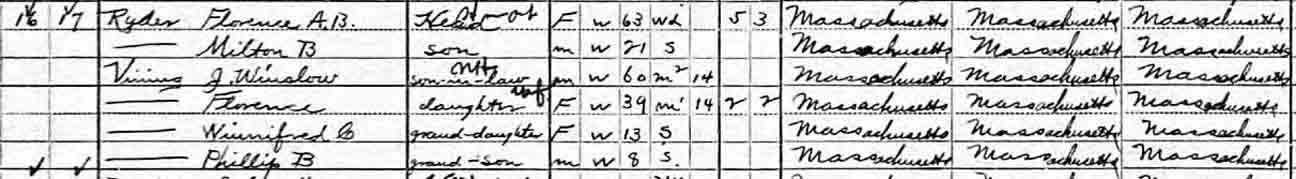 16 17 Ryder Florence A.B. Head F W 63 Wd 5 3 Massachusetts Massachusetts Massachusetts
— Milton B son m W 21 S Massachusetts Massachusetts Massachusetts
Vining J. Winslow son-in-law m W 60 m² 14 Massachusetts Massachusetts Massachusetts
— Florence daughter F W 39 m' 14 2 2 Massachusetts Massachusetts Massachusetts
— Winnifred grand-daughter F W 13 S Massachusetts Massachusetts Massachusetts
✓ ✓ — Phillip B grand-son m W 8 S. Massachusetts Massachusetts Massachusetts